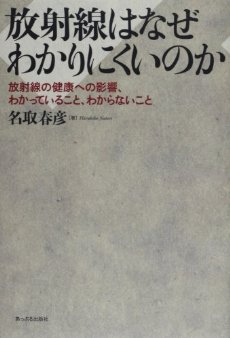 放射線はなぜ
わかりにくいのか
放射線の健康への影響、
わかっていること、わからないこと
名取春彦 [著] Haruhiko Natori
あっぷる出版社